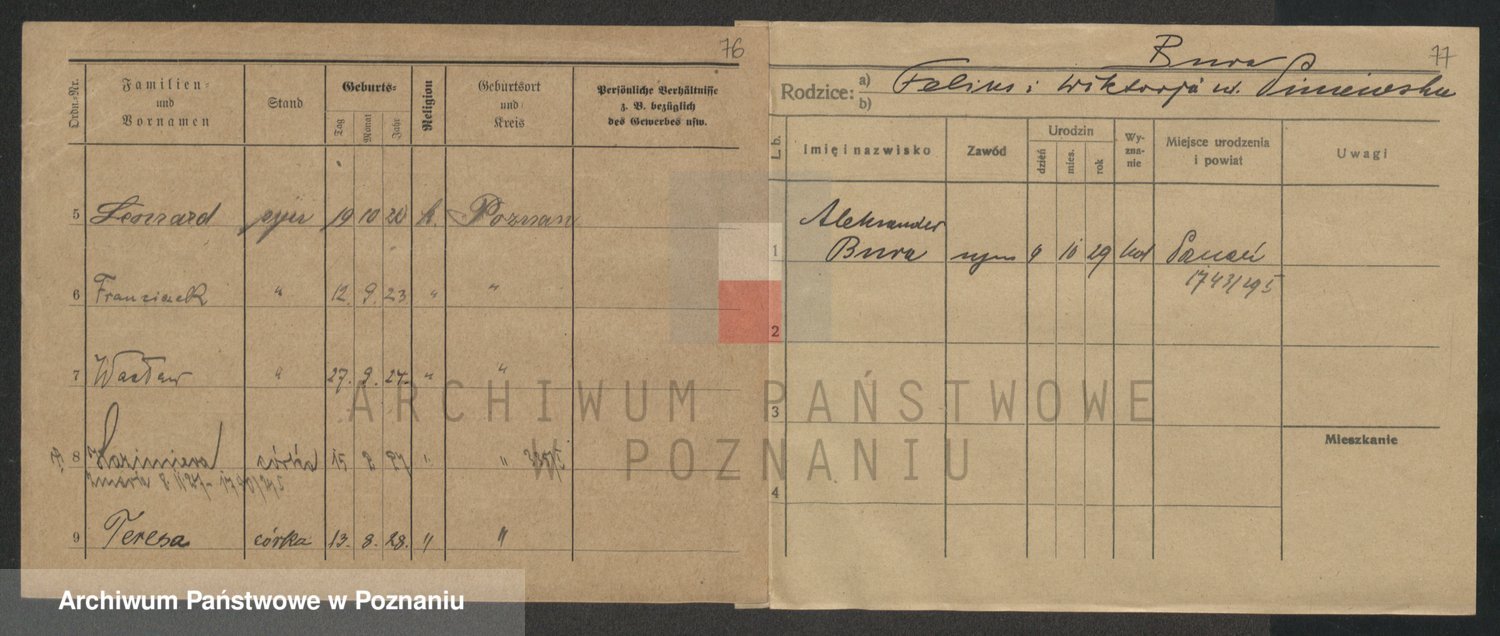 76
Ordn.-Nr.
Familien-
und
Vornamen
Stand
Geburts-
Tag
Monat
Jahr
Religion
Geburtsort
und
Kreis
Persönliche Verhältnisse
z. B. bezüglich
des Gewerbes usw.
5 Leonard syn 19 10 20 k. Poznan
6 Franciszek " 12. 9. 23. " "
7 Wacław " 27. 9. 24. " "
8 Kazimiera córka 15 2 27 " "
zmarła
9 Teresa córka 13. 8. 28. " "
77
Bura
Rodzice: a) Feliks i Wiktorja u.
b)
L. b.
Imię i nazwisko
Zawód
Urodzin
dzień
mies.
rok
Wy-
zna-
nie
Miejsce urodzenia
i powiat
Uwagi
Aleksander
1 Bura syn 9 10 29 kat Poznań
1743/295
2
3
Mieszkanie
4
ARCHIWUM PAŃSTWOWE
W POZNANIU
Archiwum Państwowe w Poznaniu